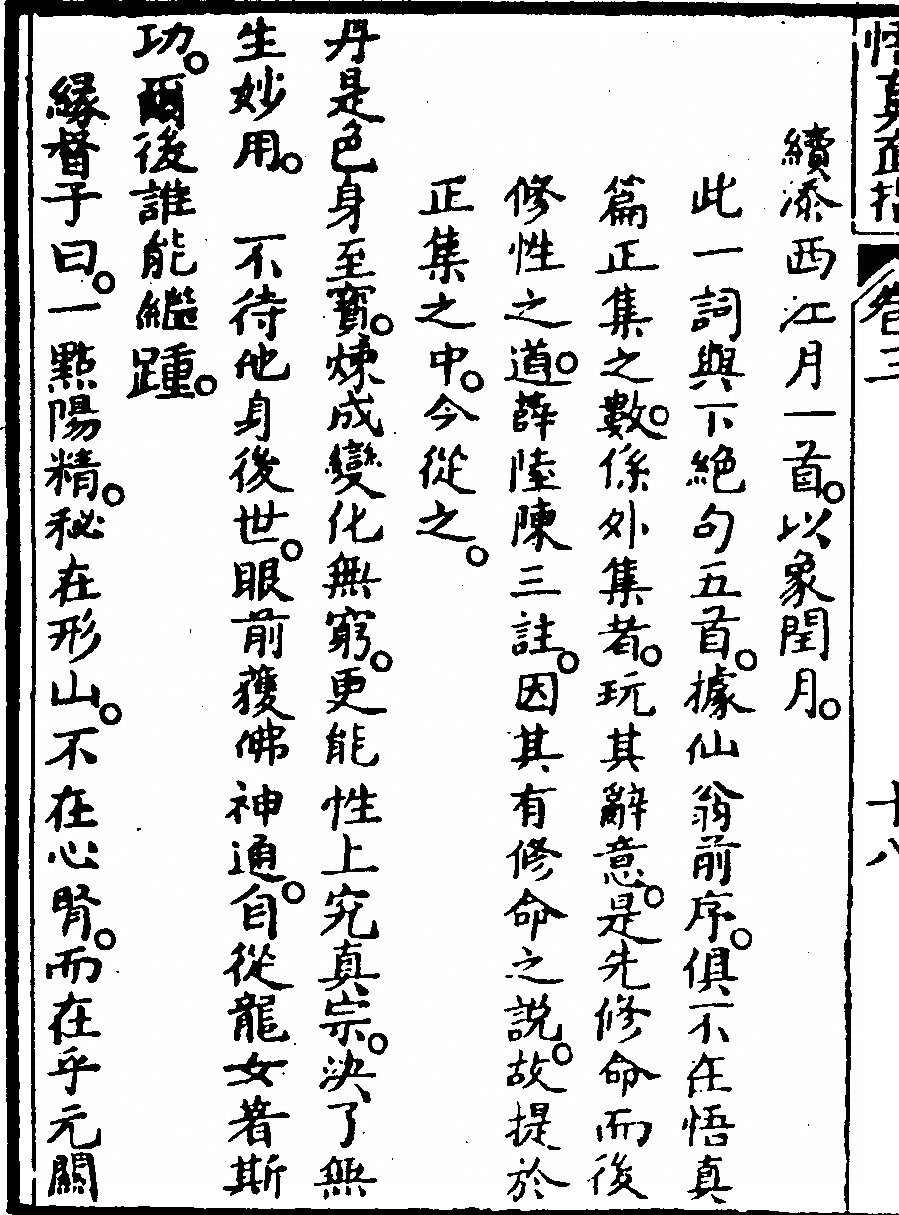 悟真直指 卷三 十八
續添西江月一首。以象閏月。
此一詞與下絕句五首。據仙翁前序。俱不在悟真
篇正集之數。係外集者。玩其辭意。是先修命而後
修性之道。薛陸陳三註。因其有修命之說。故提於
正集之中。今從之。
丹是色身至寳。煉成變化無窮。更能性上究真宗。決了無
生妙用。 不待他身後世。眼前獲佛神通。自從龍女著斯
功。爾後誰能繼踵。
緣督子曰。一點陽精。秘在形山。不在心腎。而在乎元關